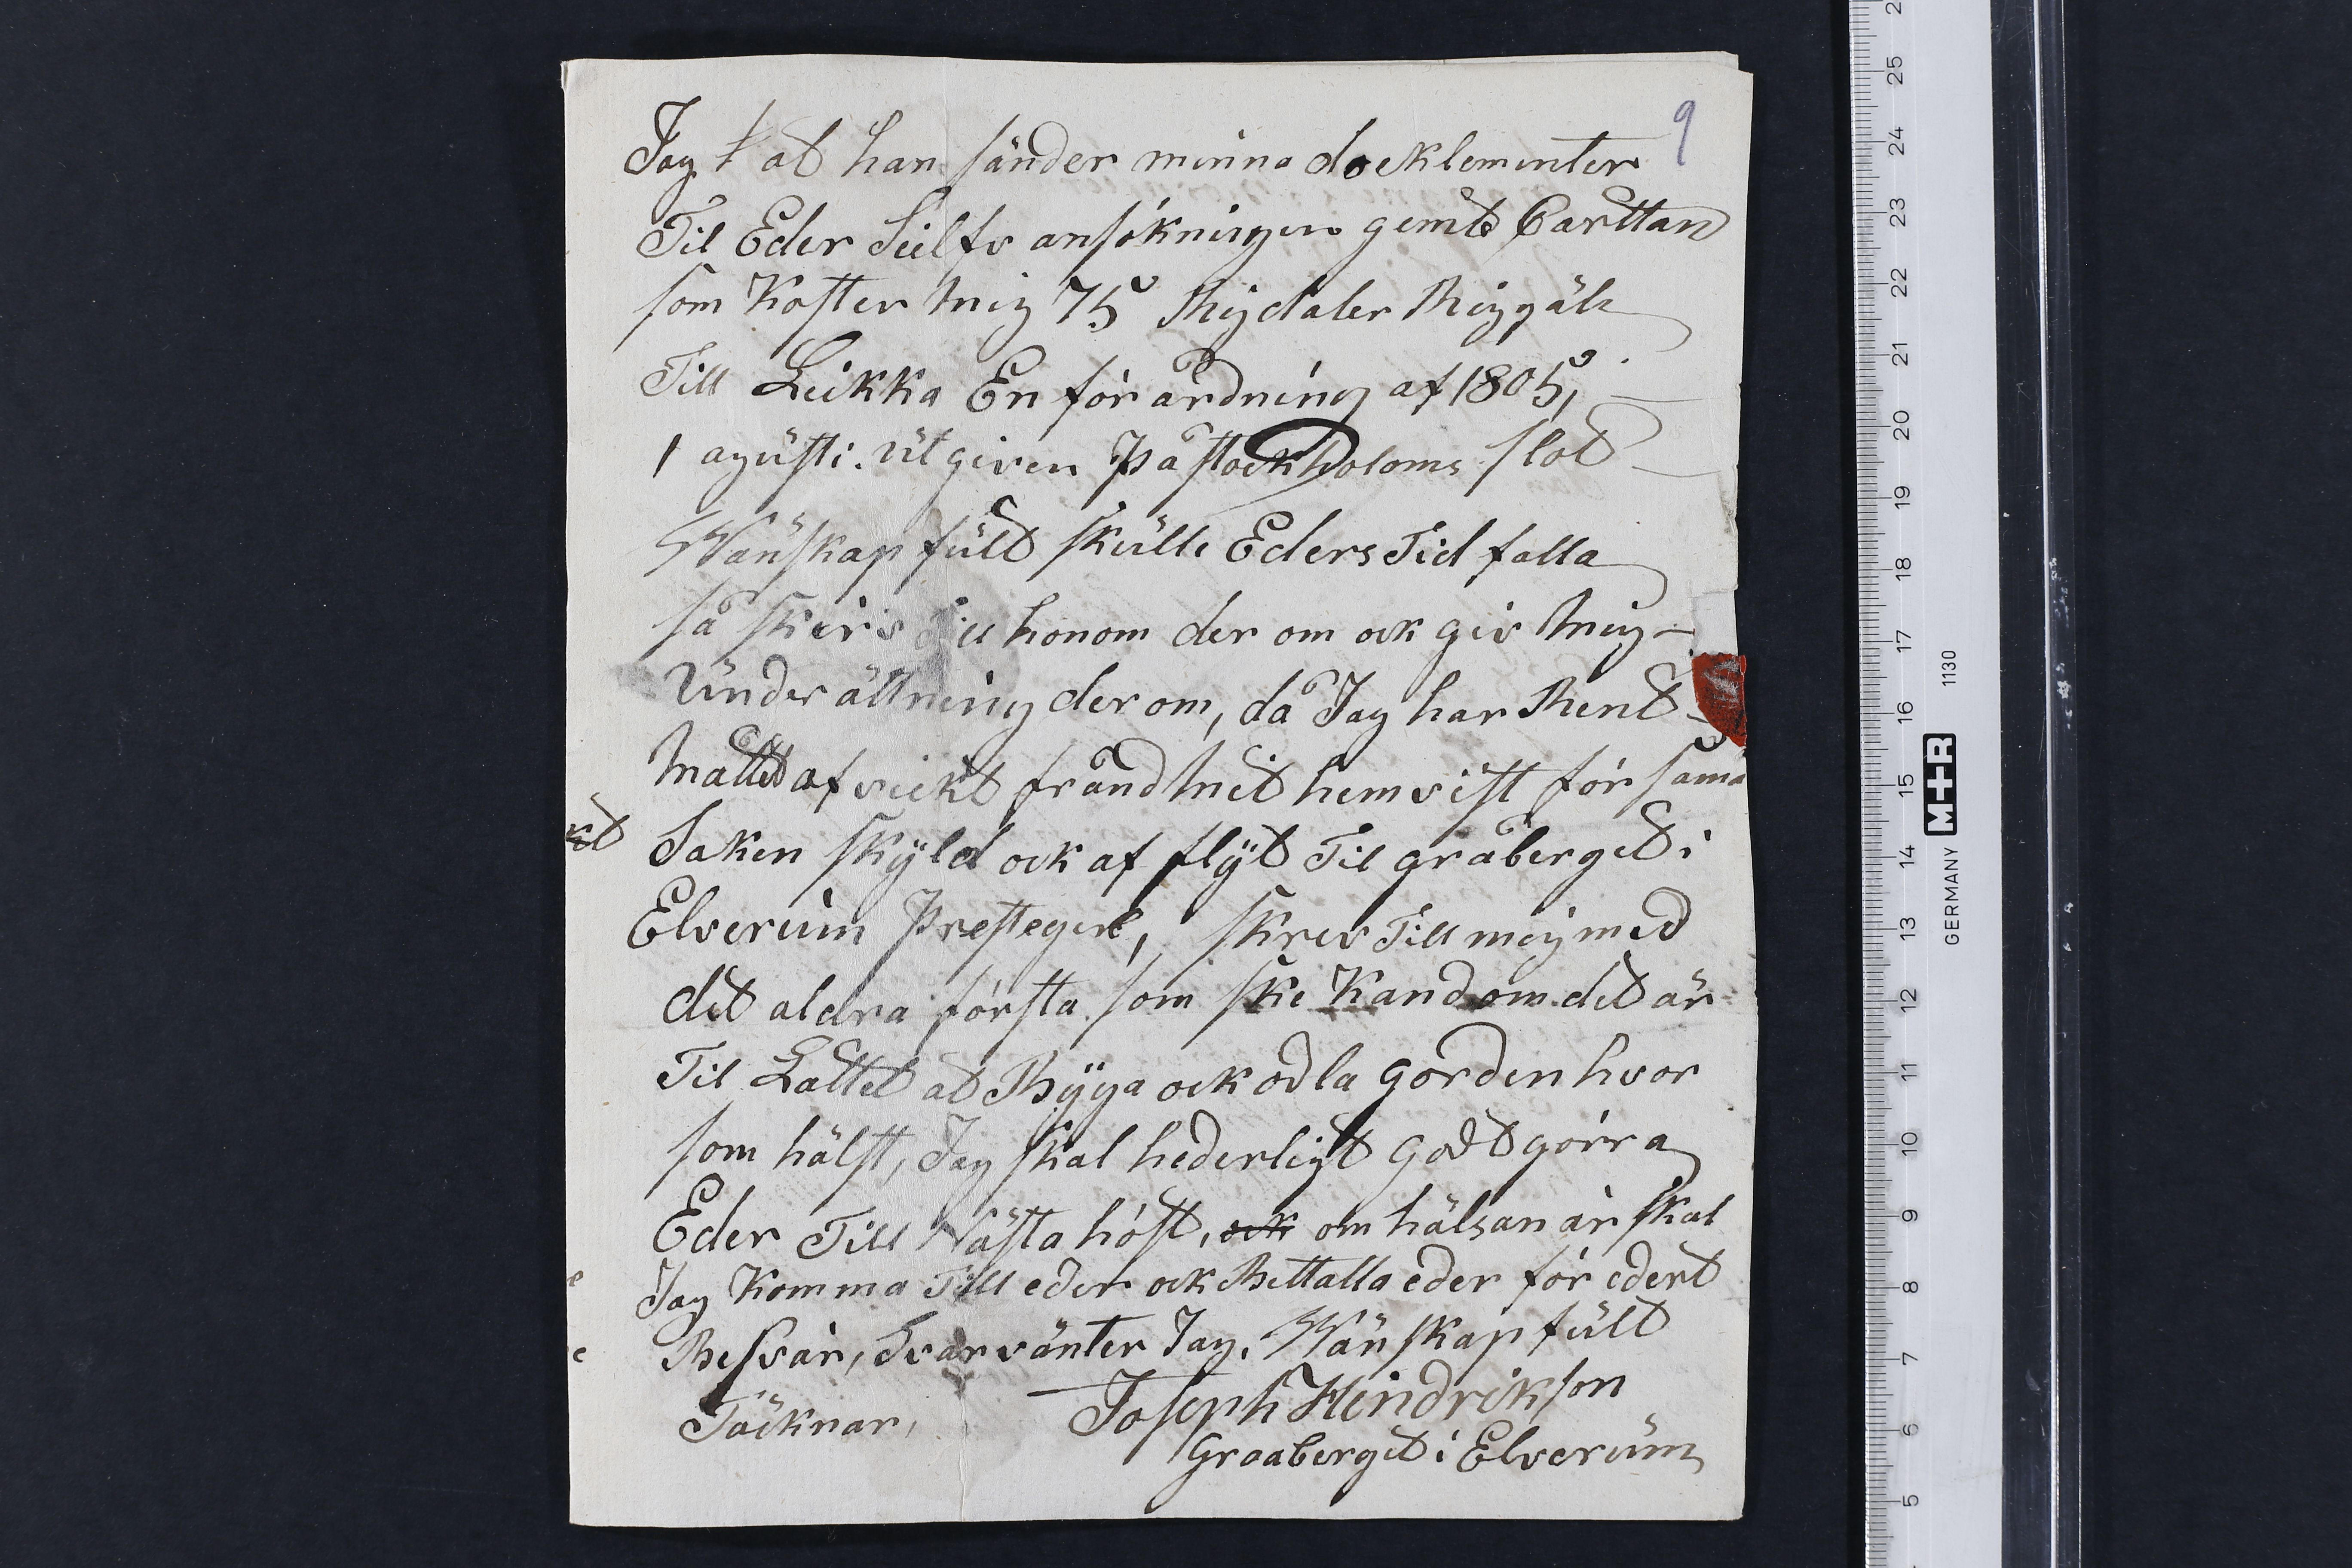 9
Jag at han sänder minna docklementer
Til Eder Seilfv ansökningen gemte Carttan
som Koster mig 75 Rigdaler Riggäls
Till Leikka En förårdning af 1805,
1 agústi. útgiven På stockholoms slot
Wänskapfült skülle Eders Tid falla
så skriv Till honom der om ock giv mig
Ünderättning derom, då Jag har Rent
måttet afveikt frånd mit hemvist för sama
Saken skÿld ock af flÿt Til gråberget i
Elverúm Prestegiel, skrev Till mig med
det aldra första som ske Kand om det är
Til Låttet at Bÿga ock odla gorden hvor
som hälst, Jag skal hederligt godtgörra
Eder Till Nästa höst, ock om hälsan är skal
Jag Komma Till eder ock Bettalla eder för edert
Besvär, Svar vänter Jag. Wänskapfült
Täcknar, Joseph Hendrikson
Graaberget i Elverúm
5 6 7 8 9 10 11 12 13 14 15 16 17 18 19 20 21 22 23 24 25
GERMANY M+R 1130